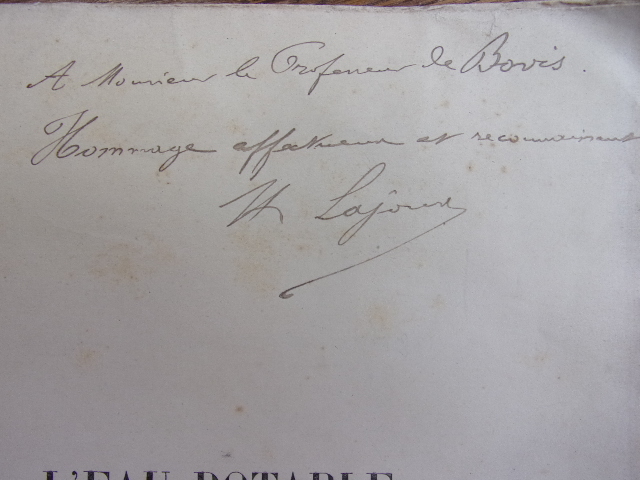 A Monsieur le Professeur de Bovis.
Hommage affectueux et reconnaissant
H Lajoux
L'EAU POTABLE